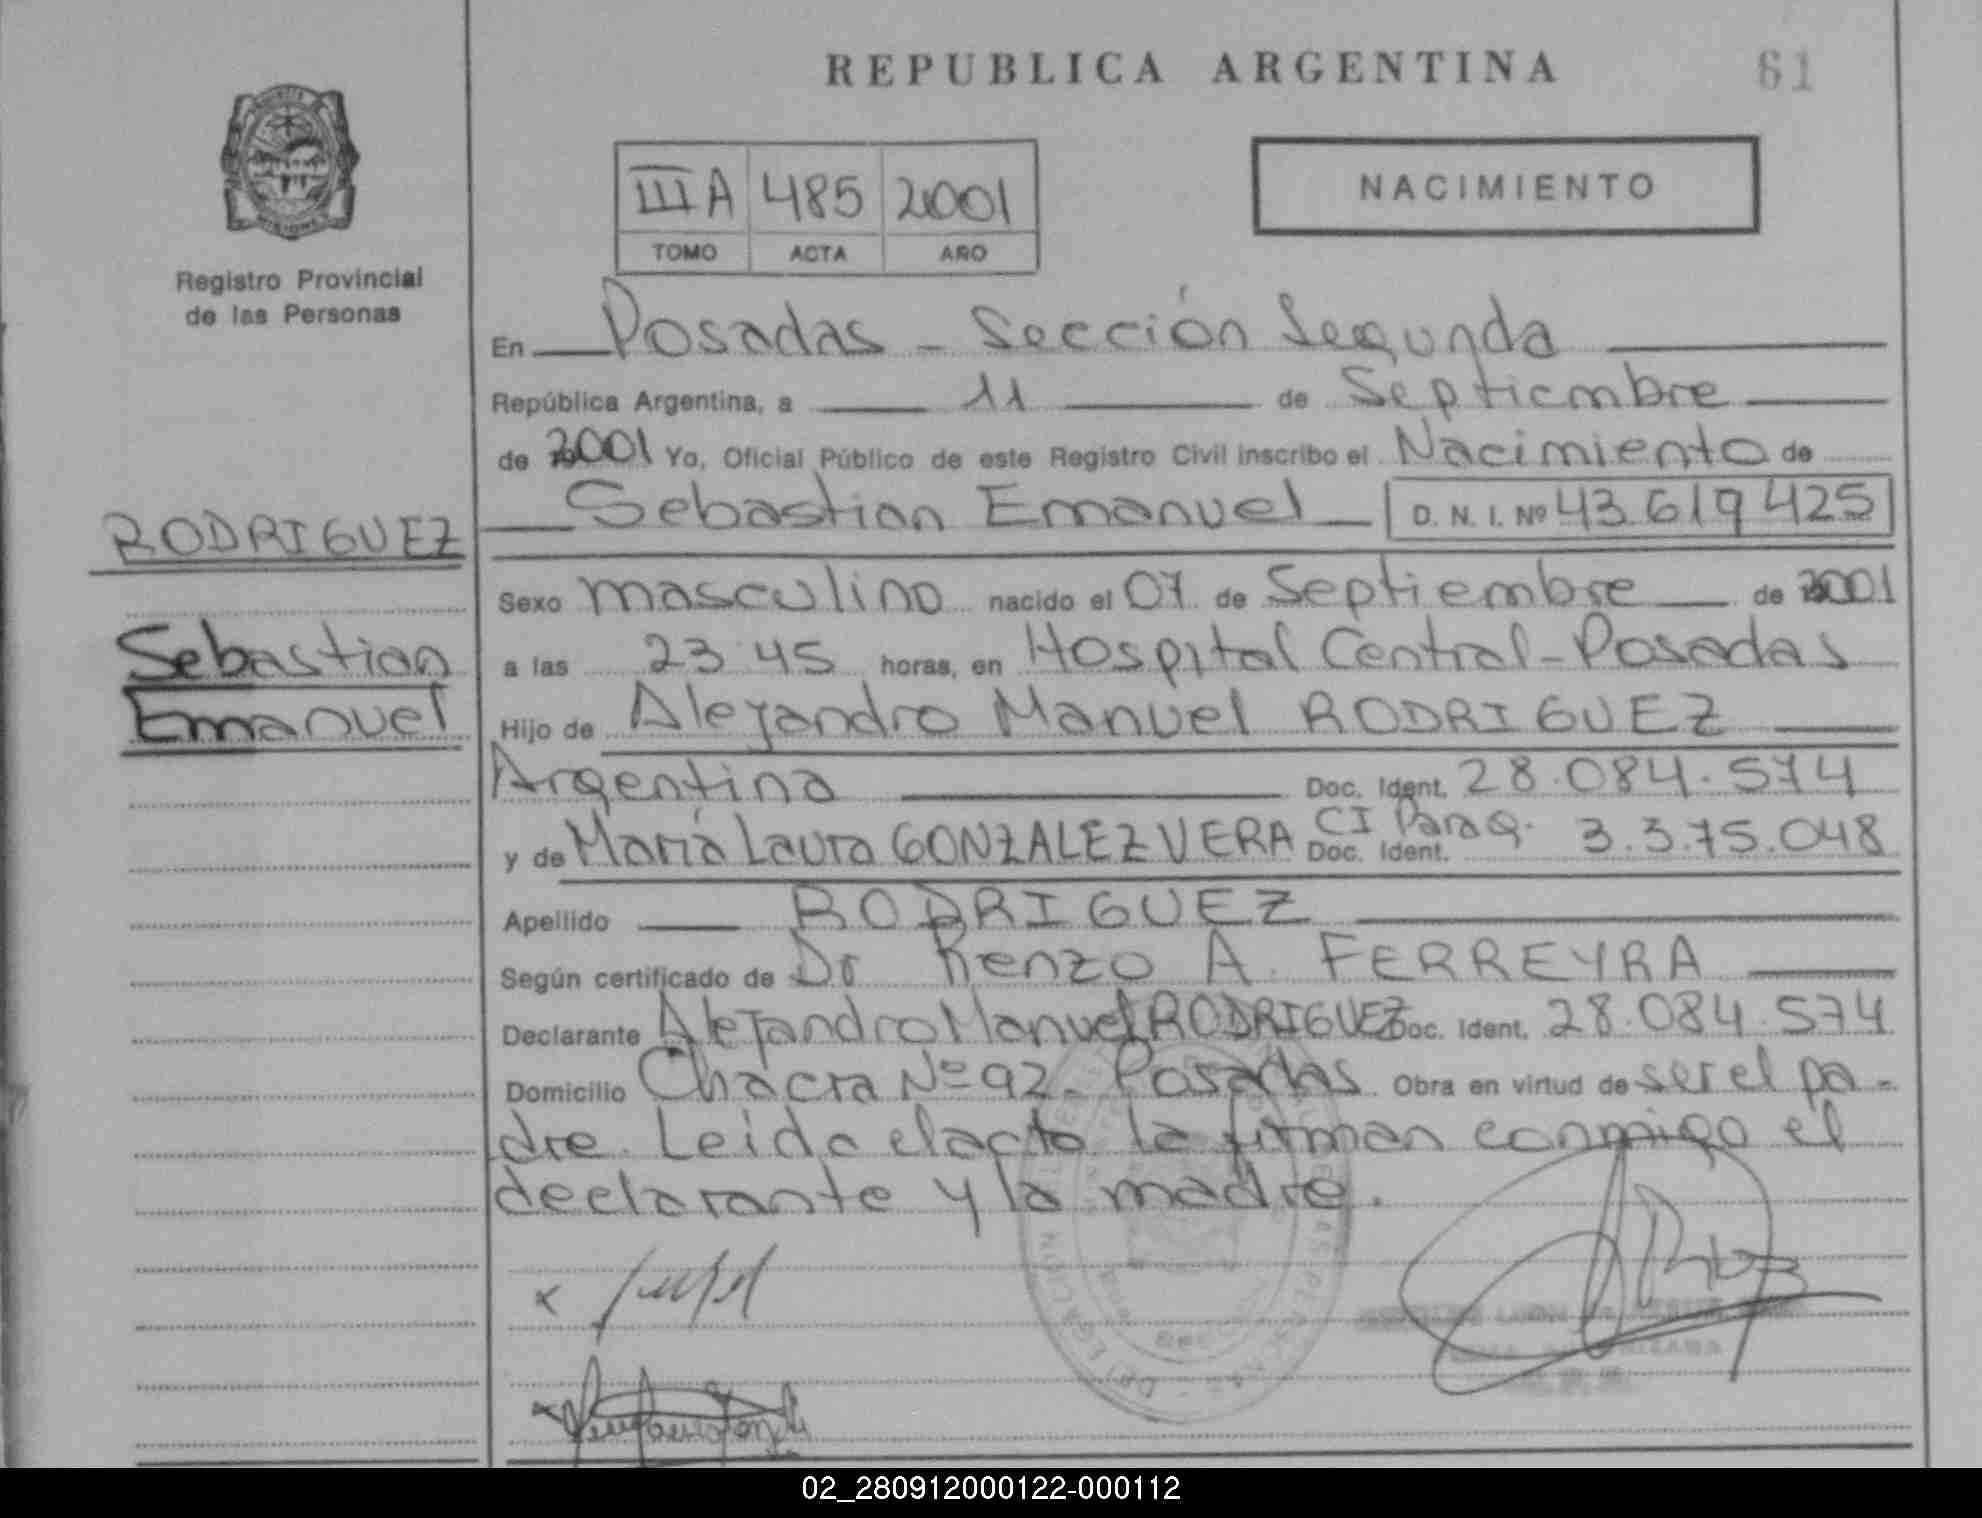 REPUBLICA ARGENTINA
61
PROVINCIA
MISIONES
Registro Provincial
de las Personas
III A 485 2001
TOMO ACTA AÑO
NACIMIENTO
En Posadas - Sección Segunda
República Argentina, a 11 de Septiembre
de 2001 Yo, Oficial Público de este Registro Civil inscribo el Nacimiento de
Sebastian Emanuel D. N. I. Nº 43.619.425
RODRIGUEZ
Sebastian
Emanuel
Sexo masculino nacido el 07 de Septiembre de 2001
a las 23 45 horas, en Hospital Central - Posadas
Hijo de Alejandro Manuel RODRIGUEZ
Argentina Doc. Ident. 28.084.574
y de Maria Laura GONZALEZ VERA CI Parag. Doc. Ident. 3.375.048
Apellido RODRIGUEZ
Según certificado de Dr Renzo A. FERREYRA
Declarante Alejandro Manuel RODRIGUEZ Doc. Ident. 28.084.574
Domicilio Chacra Nº 92 - Posadas Obra en virtud de ser el pa-
dre. Leida el acta la firman conmigo el
declarante y la madre.
02_280912000122-000112